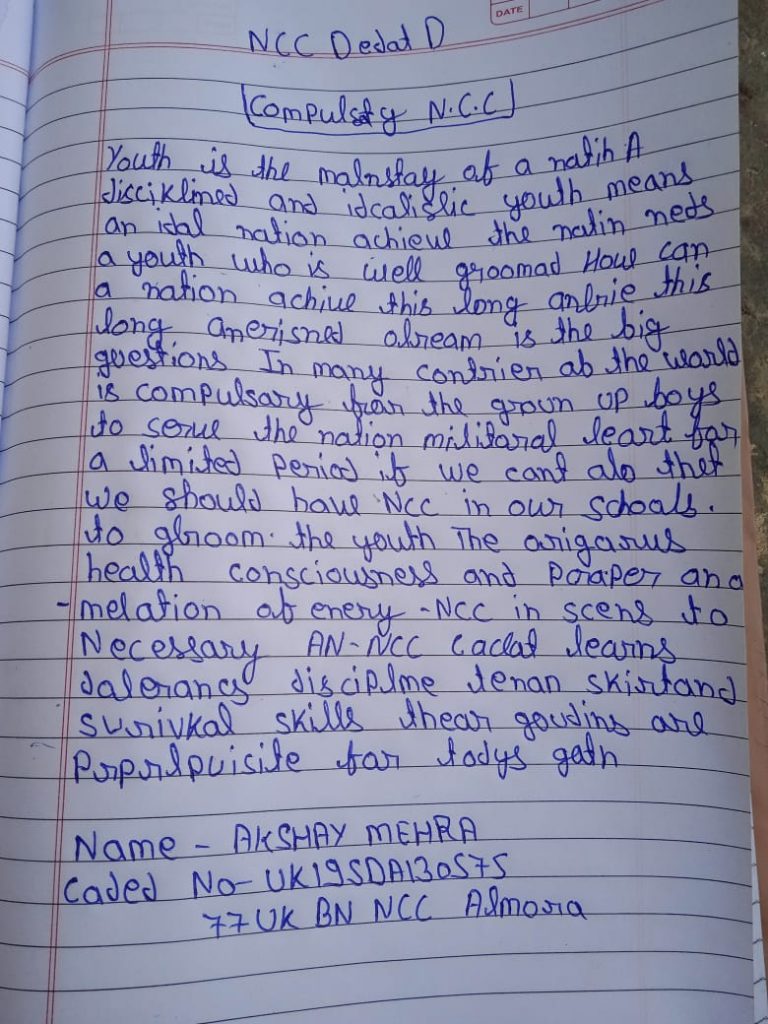 DATE
NCC Dedat D
Compulsty N.C.C
Youth is the malnstay of a natih A
disciklined and idcalislic youth means
an idal nation achieul the natin neds
a youth who is well groomad Houl can
a nation achiul this long anbrie this
long anerisned alream is the big
questions In many contrier ab the warld
is compulsary far the groun up boys
to serue the nation militaral leart far
a limited period if we cant alo thet
we should haue NCC in our schoals.
to gbroom. the youth The arigarus
health consciousness and Poraper ana
- melation ab enery - NCC in scens to
Necessary AN-NCC Cadat learns
dalerancs disciplme tenan skirtand
surivkal skills thear goudins are
Prprlpuisite far todys gath
Name - AKSHAY MEHRA
Caded No- UK19SDA130575
77 UK BN NCC Almora